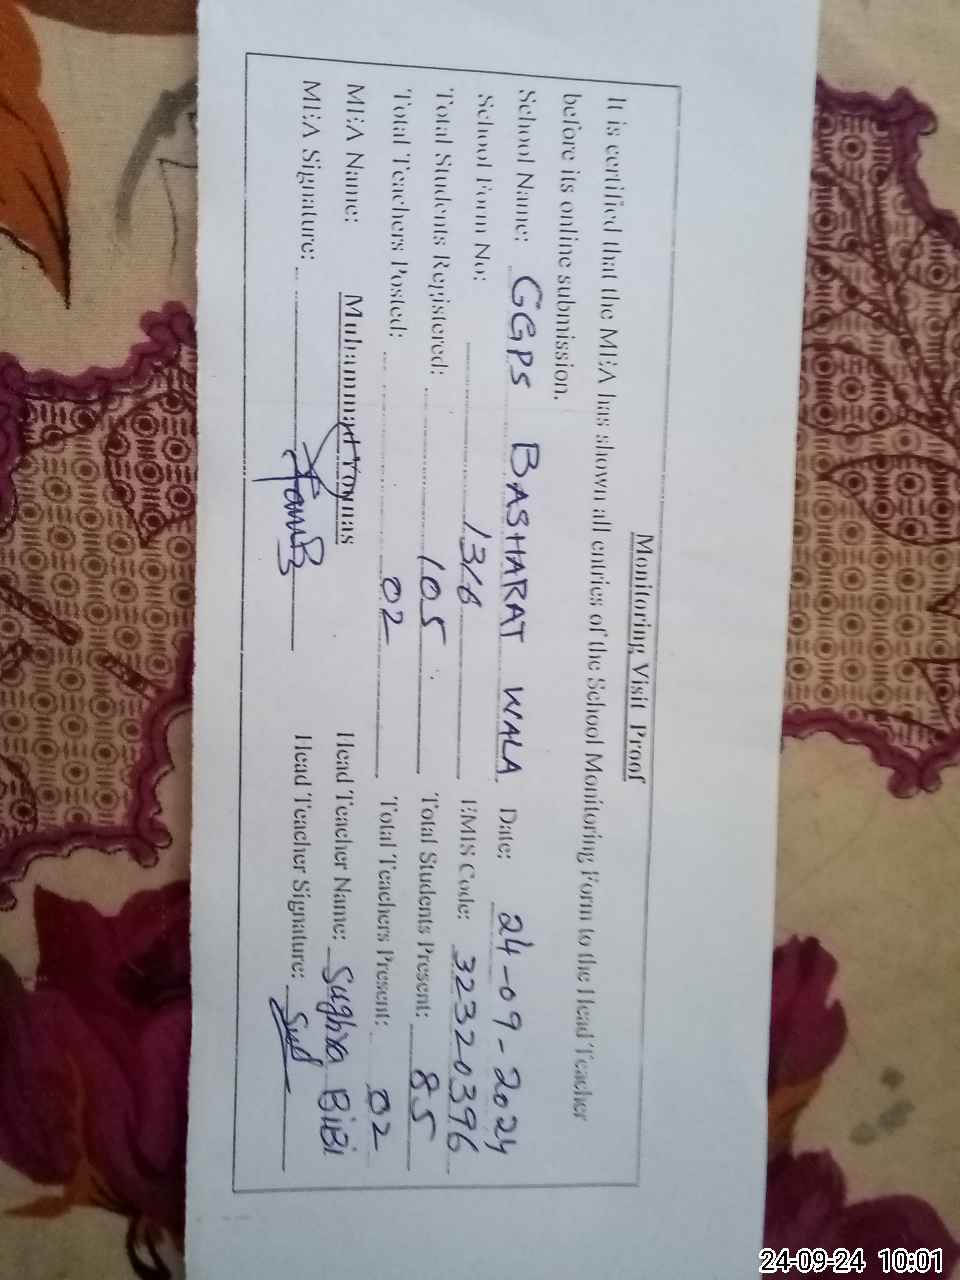 Monitoring Visit Proof
It is certified that the MEA has shown all entries of the School Monitoring Form to the Head Teacher
before its online submission.
School Name: GGPS BASHARAT WALA Date: 24-09-2024
School Form No: 1316 EMIS Code: 32320396
Total Students Registered: 105 Total Students Present: 85
Total Teachers Posted: 02 Total Teachers Present: 02
MEA Name: Muhammad Younas Head Teacher Name: Sughra BiBi
MEA Signature: Head Teacher Signature:
24-09-24 10:01